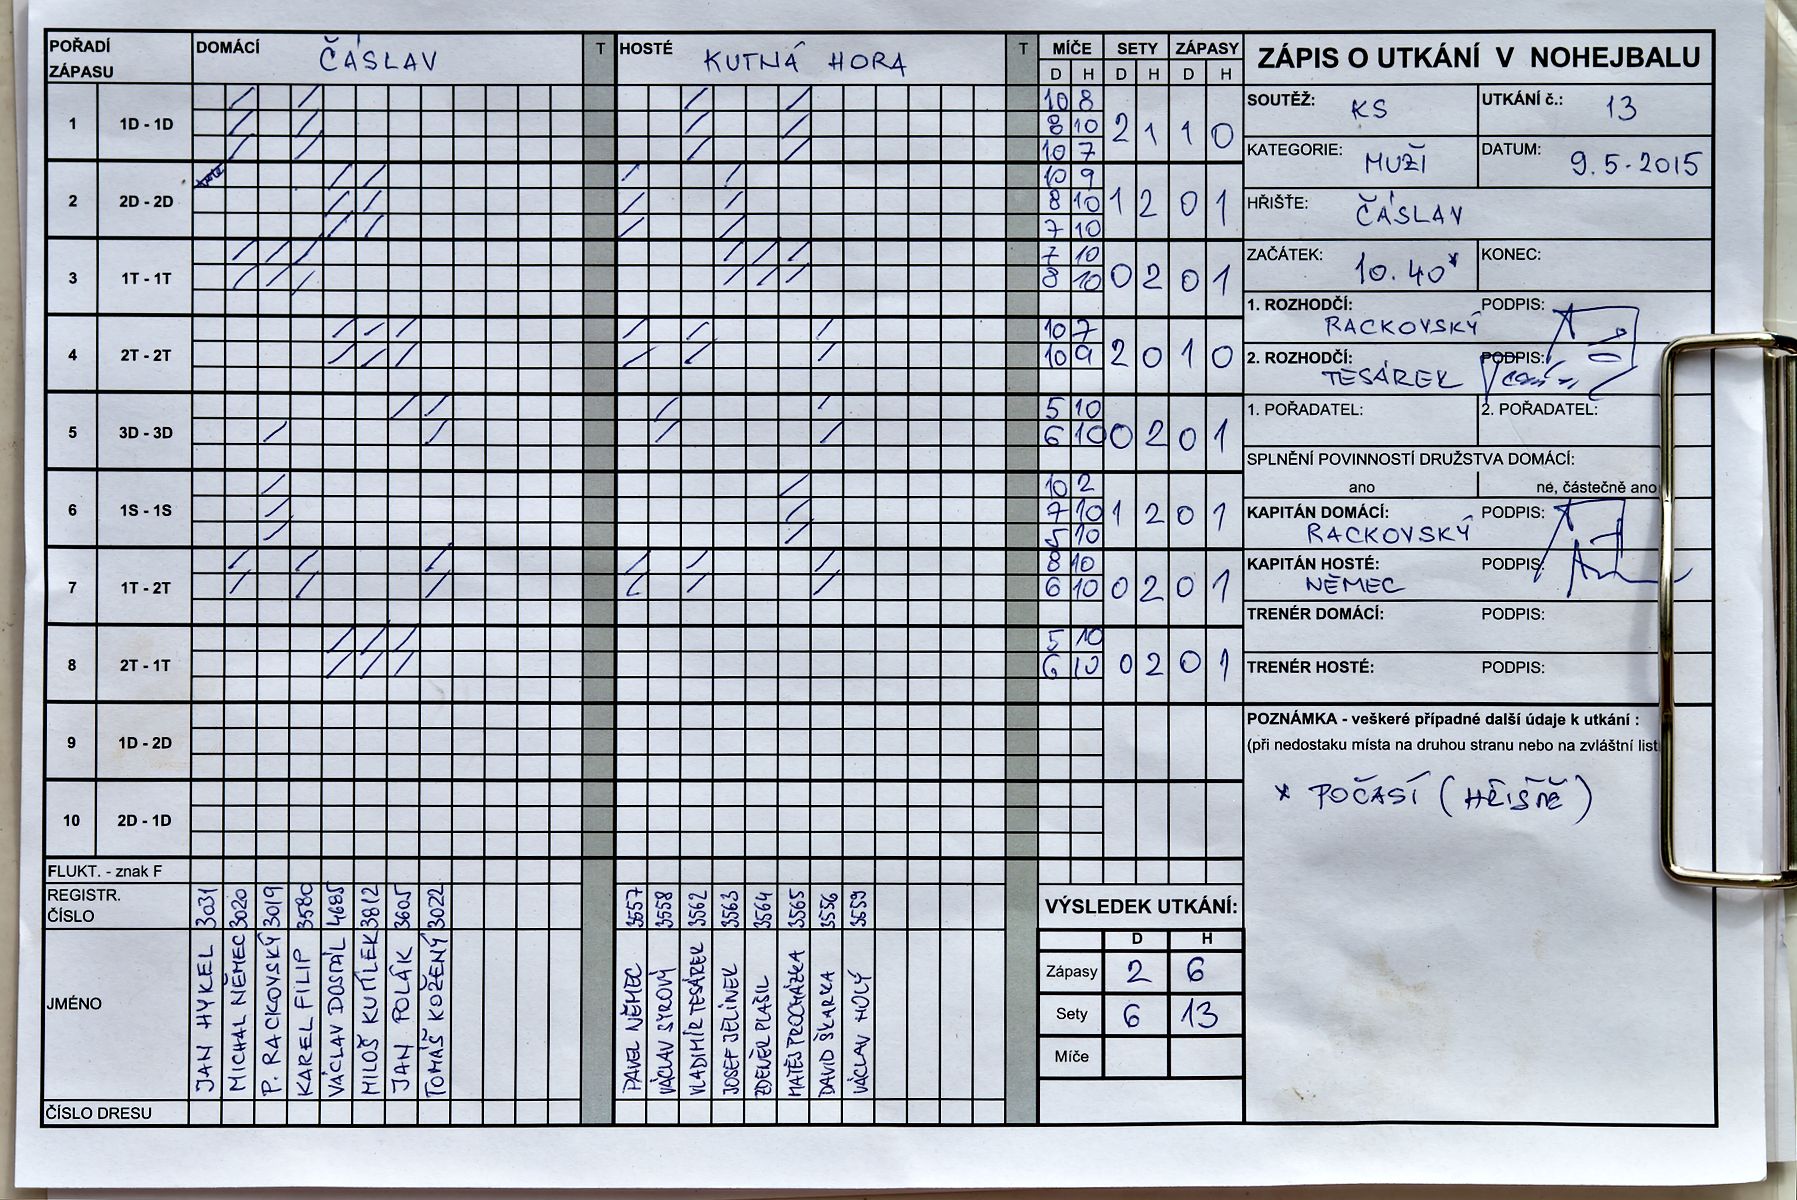 POŘADÍ ZÁPASU DOMÁCÍ ČÁSLAV T HOSTÉ KUTNÁ HORA T MÍČE SETY ZÁPASY
D H D H D H
1 1D - 1D 10 8 2 1 1 0
8 10
10 7
2 2D - 2D 10 9 1 2 0 1
8 10
7 10
3 1T - 1T 7 10 0 2 0 1
8 10
4 2T - 2T 10 7 2 0 1 0
10 9
5 3D - 3D 5 10 0 2 0 1
6 10
6 1S - 1S 10 2 1 2 0 1
7 10
5 10
7 1T - 2T 8 10 0 2 0 1
6 10
8 2T - 1T 5 10 0 2 0 1
6 10
9 1D - 2D
10 2D - 1D
FLUKT. - znak F
REGISTR. ČÍSLO 3031 3020 3019 3580 4685 3812 3605 3022 3557 3558 3562 3563 3564 3565 3556 3559
JMÉNO
JAN HYKEL
MICHAL NĚMEC
P. RACKOVSKÝ
KAREL FILIP
VÁCLAV DOSTÁL
MILOŠ KUTÍLEK
JAN POLÁK
TOMÁŠ KOŽENÝ
PAVEL NĚMEC
VÁCLAV SYROVÝ
VLADIMÍR TESÁREK
JOSEF JELÍNEK
ZDENĚK PLAŠIL
MATĚJ PROCHÁZKA
DAVID ŠKARKA
VÁCLAV HOLÝ
ČÍSLO DRESU
VÝSLEDEK UTKÁNÍ:
D H
Zápasy 2 6
Sety 6 13
Míče
ZÁPIS O UTKÁNÍ V NOHEJBALU
SOUTĚŽ: KS UTKÁNÍ č.: 13
KATEGORIE: MUŽI DATUM: 9.5.2015
HŘIŠTE: ČÁSLAV
ZAČÁTEK: 10.40* KONEC:
1. ROZHODČÍ: RACKOVSKÝ PODPIS:
2. ROZHODČÍ: TESÁREK PODPIS:
1. POŘADATEL: 2. POŘADATEL:
SPLNĚNÍ POVINNOSTÍ DRUŽSTVA DOMÁCÍ:
ano ne, částečně ano
KAPITÁN DOMÁCÍ: RACKOVSKÝ PODPIS:
KAPITÁN HOSTÉ: NĚMEC PODPIS:
TRENÉR DOMÁCÍ: PODPIS:
TRENÉR HOSTÉ: PODPIS:
POZNÁMKA - veškeré případné další údaje k utkání :
(při nedostaku místa na druhou stranu nebo na zvláštní list
* POČASÍ (HŘIŠTĚ)